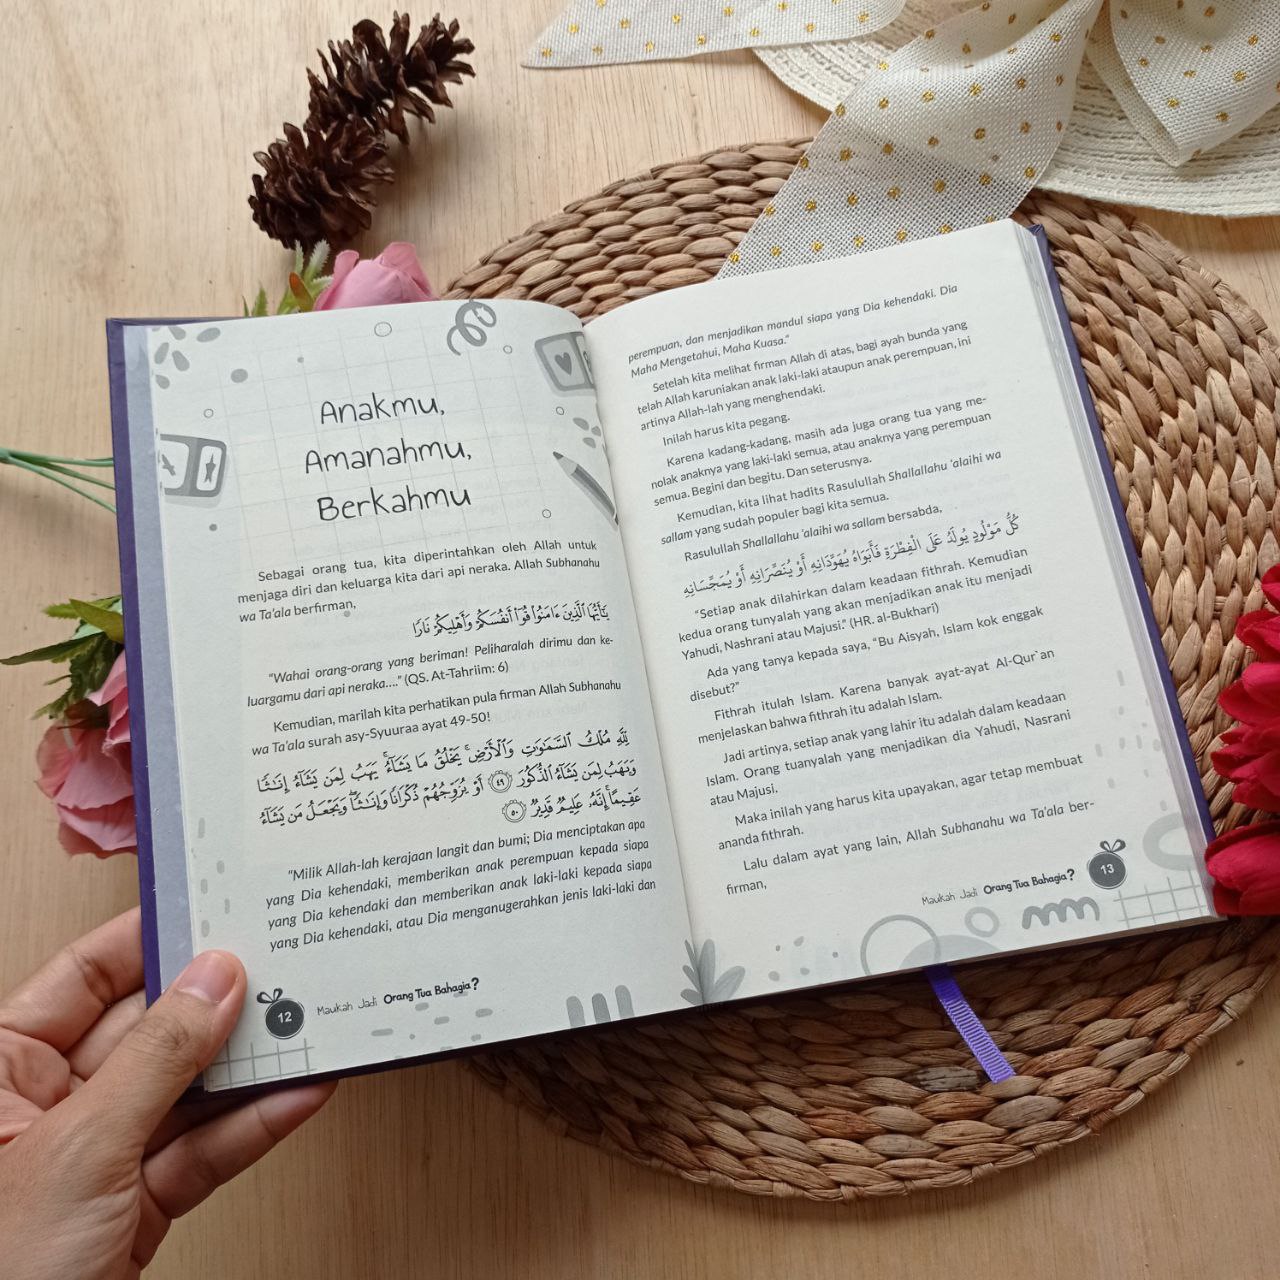 Anakmu,
Amanahmu,
Berkahmu
Sebagai orang tua, kita diperintahkan oleh Allah untuk
menjaga diri dan keluarga kita dari api neraka. Allah Subhanahu
wa Ta'ala berfirman,
يَٰٓأَيُّهَا ٱلَّذِينَ ءَامَنُوا۟ قُوٓا۟ أَنفُسَكُمْ وَأَهْلِيكُمْ نَارًا
“Wahai orang-orang yang beriman! Peliharalah dirimu dan ke-
luargamu dari api neraka....” (QS. At-Tahriim: 6)
Kemudian, marilah kita perhatikan pula firman Allah Subhanahu
wa Ta'ala surah asy-Syuuraa ayat 49-50!
لِّلَّهِ مُلْكُ ٱلسَّمَٰوَٰتِ وَٱلْأَرْضِ ۚ يَخْلُقُ مَا يَشَآءُ ۚ يَهَبُ لِمَن يَشَآءُ إِنَٰثًا
وَيَهَبُ لِمَن يَشَآءُ ٱلذُّكُورَ ٤٩ أَوْ يُزَوِّجُهُمْ ذُكْرَانًا وَإِنَٰثًا ۖ وَيَجْعَلُ مَن يَشَآءُ
عَقِيمًا ۚ إِنَّهُۥ عَلِيمٌ قَدِيرٌ ٥٠
“Milik Allah-lah kerajaan langit dan bumi; Dia menciptakan apa
yang Dia kehendaki, memberikan anak perempuan kepada siapa
yang Dia kehendaki dan memberikan anak laki-laki kepada siapa
yang Dia kehendaki, atau Dia menganugerahkan jenis laki-laki dan
12 Maukah Jadi Orang Tua Bahagia?
perempuan, dan menjadikan mandul siapa yang Dia kehendaki. Dia
Maha Mengetahui, Maha Kuasa.”
Setelah kita melihat firman Allah di atas, bagi ayah bunda yang
telah Allah karuniakan anak laki-laki ataupun anak perempuan, ini
artinya Allah-lah yang menghendaki.
Inilah harus kita pegang.
Karena kadang-kadang, masih ada juga orang tua yang me-
nolak anaknya yang laki-laki semua, atau anaknya yang perempuan
semua. Begini dan begitu. Dan seterusnya.
Kemudian, kita lihat hadits Rasulullah Shallallahu 'alaihi wa
sallam yang sudah populer bagi kita semua.
Rasulullah Shallallahu 'alaihi wa sallam bersabda,
كُلُّ مَوْلُودٍ يُولَدُ عَلَى الْفِطْرَةِ فَأَبَوَاهُ يُهَوِّدَانِهِ أَوْ يُنَصِّرَانِهِ أَوْ يُمَجِّسَانِهِ
“Setiap anak dilahirkan dalam keadaan fithrah. Kemudian
kedua orang tunyalah yang akan menjadikan anak itu menjadi
Yahudi, Nashrani atau Majusi.” (HR. al-Bukhari)
Ada yang tanya kepada saya, “Bu Aisyah, Islam kok enggak
disebut?”
Fithrah itulah Islam. Karena banyak ayat-ayat Al-Qur`an
menjelaskan bahwa fithrah itu adalah Islam.
Jadi artinya, setiap anak yang lahir itu adalah dalam keadaan
Islam. Orang tuanyalah yang menjadikan dia Yahudi, Nasrani
atau Majusi.
Maka inilah yang harus kita upayakan, agar tetap membuat
ananda fithrah.
Lalu dalam ayat yang lain, Allah Subhanahu wa Ta'ala ber-
firman,
Maukah Jadi Orang Tua Bahagia? 13